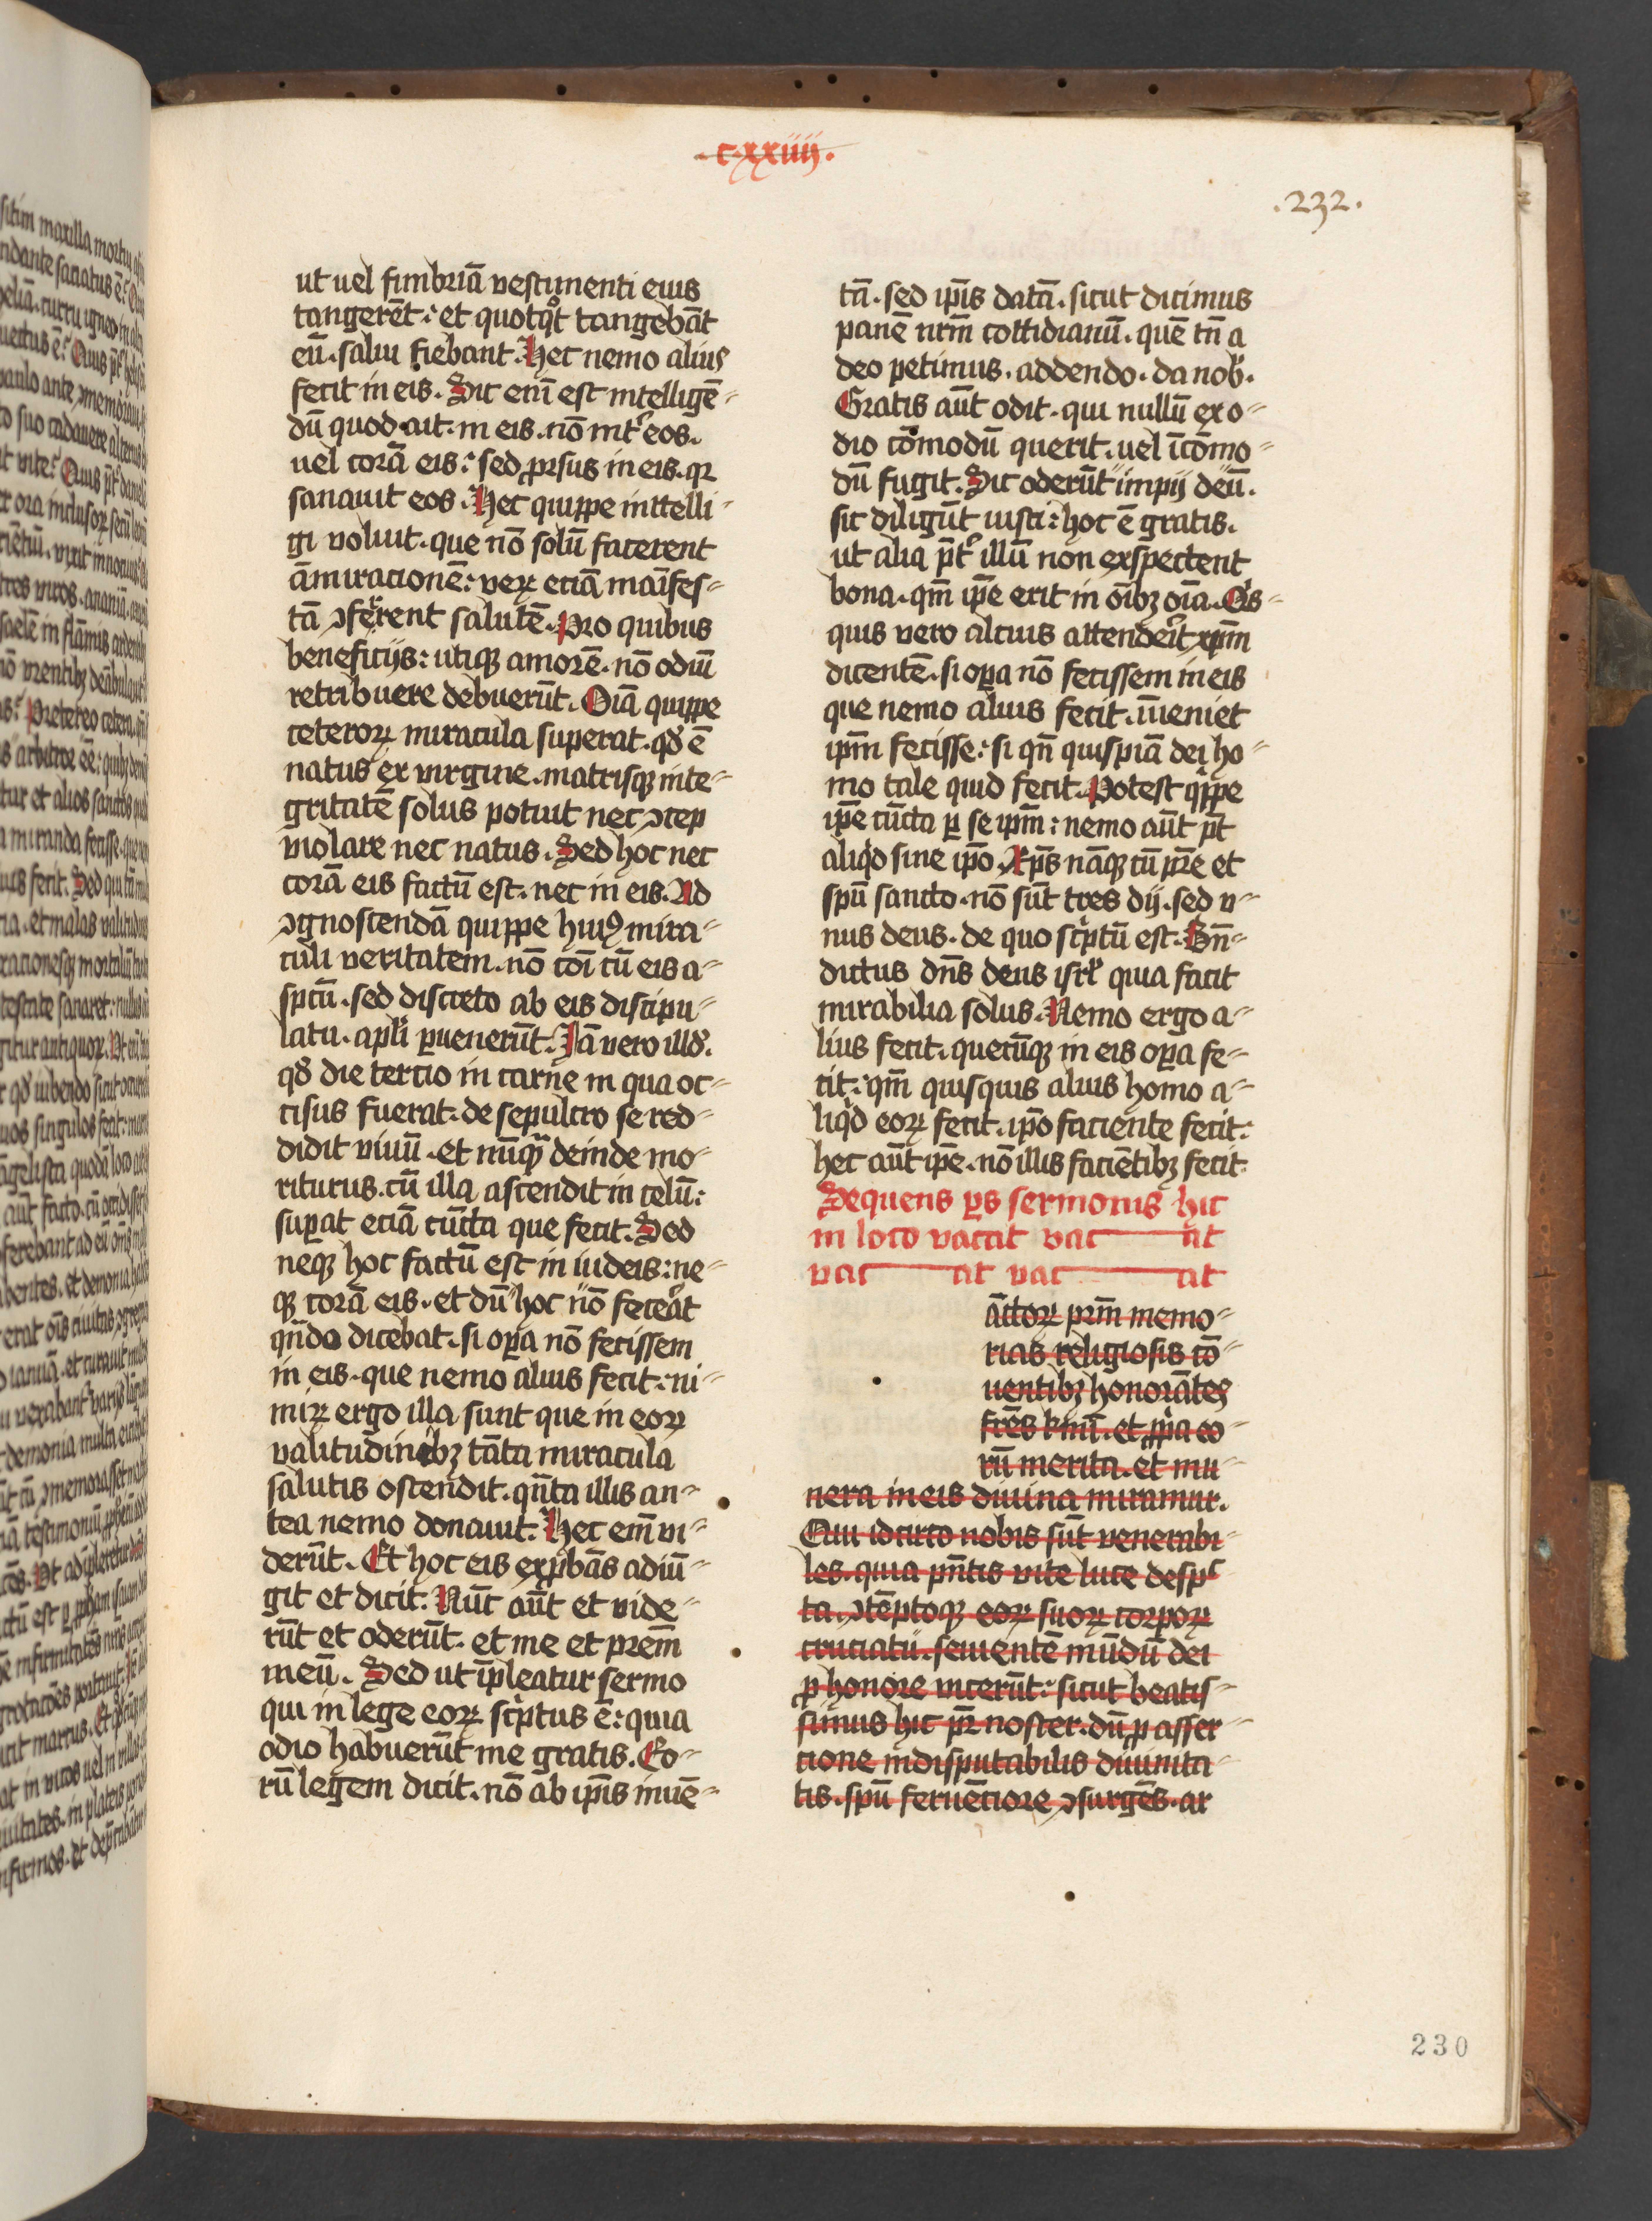 .c.xxiiij.
.232.
ut uel fimbriā vestimenti eius
tangerēt: et quotqͦt tangebāt
eū. salui fiebant. Hec nemo alius
fecit in eis. Sic enī est intelligē-
dū quod ait. in eis. nō intͥ eos.
uel corā eis: sed ꝓrsus in eis. qꝛ
sanauit eos. Hec quippe inttelli-
gi voluit. que nō solū facerent
āmiracionē: veꝝ eciā maīfes-
tā ꝯferrent salutē. Pro quibus
beneficijs: utiqꝫ amorē. nō odiū
retribuere debuerūt. Oīa quippe
ceteroꝝ miracula superat. qd̕ ē
natus ex virgine. matrisqꝫ inte-
gritatē solus potuit nec ꝯcep
violare nec natus. Sed hoc nec
corā eis factū est. nec in eis. Ad
ꝯgnoscendā quippe huiꝰ mira-
culi veritatem. nō cōi cū eis a-
spcū. sed discreto ab eis discipu-
latu. apli ꝑuenerūt. Iā vero illd̕.
qd̕ die tercio in carne in qua oc-
cisus fuerat. de sepulcro se red-
didit viuū. et nūqͣ deinde mo-
riturus. cū illa ascendit in celū:
suꝑat eciā cūcta que fecit. Sed
neqꝫ hoc factū est in iudeis: ne-
qꝫ corā eis. et dū hoc nō feceͣt
qn̄do dicebat. si oꝑa nō fecissem
in eis. que nemo alius fecit: ni-
miꝝ ergo illa sunt que in eoꝝ
valitudinibꝫ tāta miracula
salutis ostendit. qn̄ta illis an-
tea nemo donauit. Hec em̄ vi-
derūt. Et hoc eis exꝓbās adiū-
git et dicit. Nūc aūt et vide-
rūt et oderūt. et me et prem̄
meū. Sed ut īpleatur sermo
qui in lege eoꝝ scͥptus ē: quia
odio habuerūt me gratis. Eo-
rū legem dicit. nō ab ip̄is inuē-
tā. sed ip̄is datā. sicut dicimus
panē nrm̄ cottidianū. quē tn̄ a
deo petimus. addendo. da nob̕.
Gratis aūt odit. qui nullū ex o-
dio cōmodū querit. uel īcōmo-
dū fugit. Sic oderūt impij deū.
sic diligūt iusti: hoc ē gratis.
ut alia p̄tͥ illū non exspectent
bona. qm̄ ip̄e erit in oībꝫ oīa. Qͥs-
quis vero alcius attendeͥt xp̄m
dicentē. si oꝑa nō fecissem in eis
que nemo alius fecit. īueniet
ipm̄ fecisse: si qn̄ quispiā dei ho-
mo tale quid fecit. Potest qͥppe
ip̄e cūcta ꝑ se ipm̄: nemo aūt pt̄
aliqͥd sine ip̄o. Xp̄s nāqꝫ cū pre et
spū sancto. nō sūt tres dij. sed v-
nus deus. de quo scͥptū est. Bn̄-
dictus dn̄s deus isrl̕ quia facit
mirabilia solus. Nemo ergo a-
lius fecit. quecūqꝫ in eis oꝑa fe-
cit: qm̄ quisquis alius homo a-
liqͥd eoꝝ fecit. ip̄o faciente fecit:
hec aūt ip̄e. nō illis faciētibꝫ fecit.
Sequens ꝑs sermonis hic
in loco vaccat vac at
vac at vac at
āctoꝝ prm̄ memo-
rias religiosis cō-
uentibꝫ honorātes
frēs kmī. et ꝓpͥa eo-
rū merita. et mu-
nera in eis diuina miramur.
Qui idcirco nobis sūt venerabi-
les. quia pn̄tis vite luce desp-
ta. ꝯtēptoqꝫ eoꝝ suoꝝ corpoꝝ
cruciatu. seuientē mūdū dei
ꝓ honore vicerūt: sicut beatis-
simus hic pꝛ noster. dū ꝓ asser-
cione indisputabilis diuinita-
tis. spū feruēciore ꝯsurgēs. ar
230